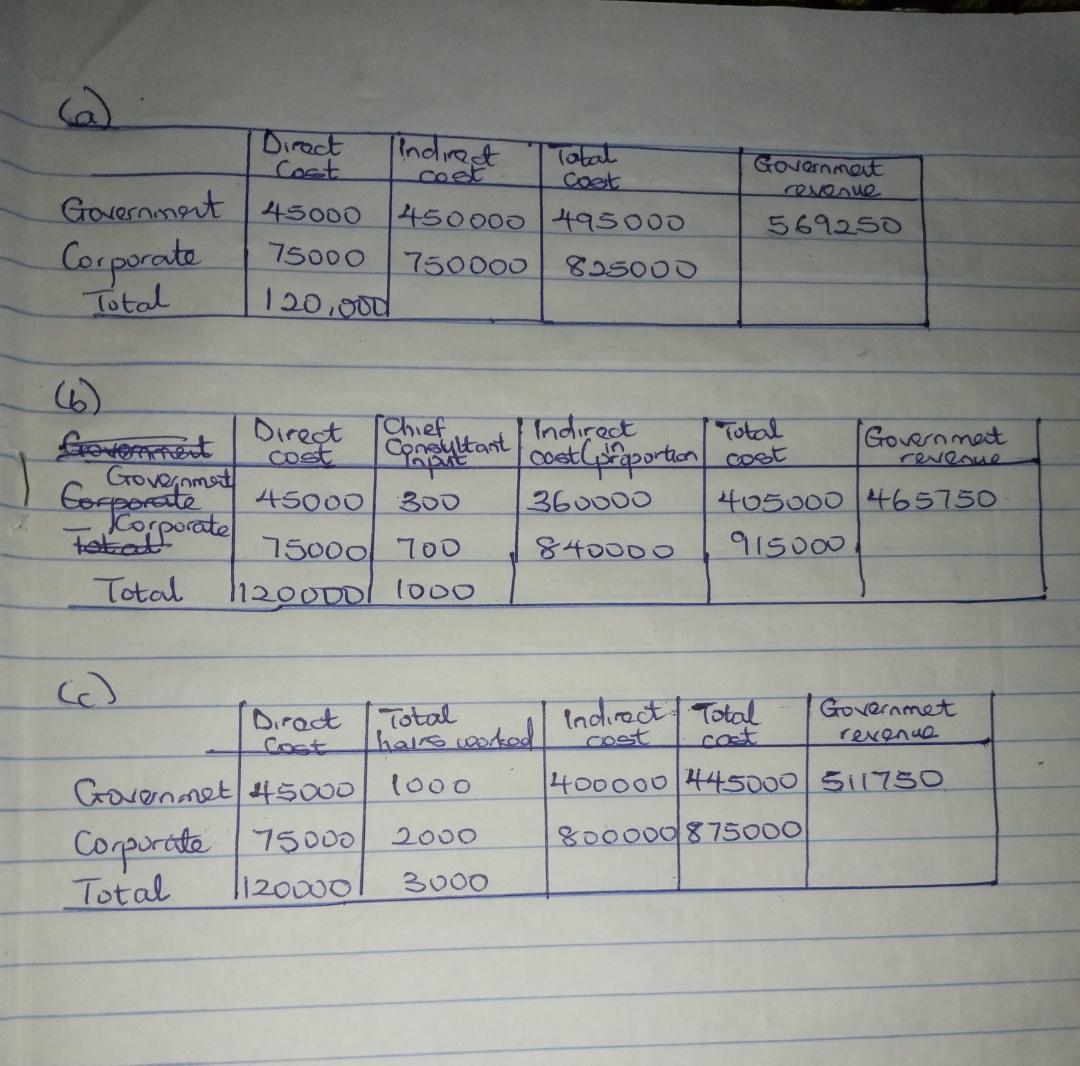 (a)
Direct Cost | Indirect cost | Total cost | Government revenue
Government | 45000 | 450000 | 495000 | 569250
Corporate | 75000 | 750000 | 825000
Total | 120,000
(b)
Government | Direct cost | Chief Consultant Input | Indirect cost (in proportion | Total cost | Government revenue
Government Corporate | 45000 | 300 | 360000 | 405000 | 465750
Corporate Total | 75000 | 700 | 840000 | 915000
Total | 120000 | 1000
(c)
Direct Cost | Total hours worked | Indirect cost | Total cost | Governmet revenue
Governmet | 45000 | 1000 | 400000 | 445000 | 511750
Corporate | 75000 | 2000 | 800000 | 875000
Total | 120000 | 3000